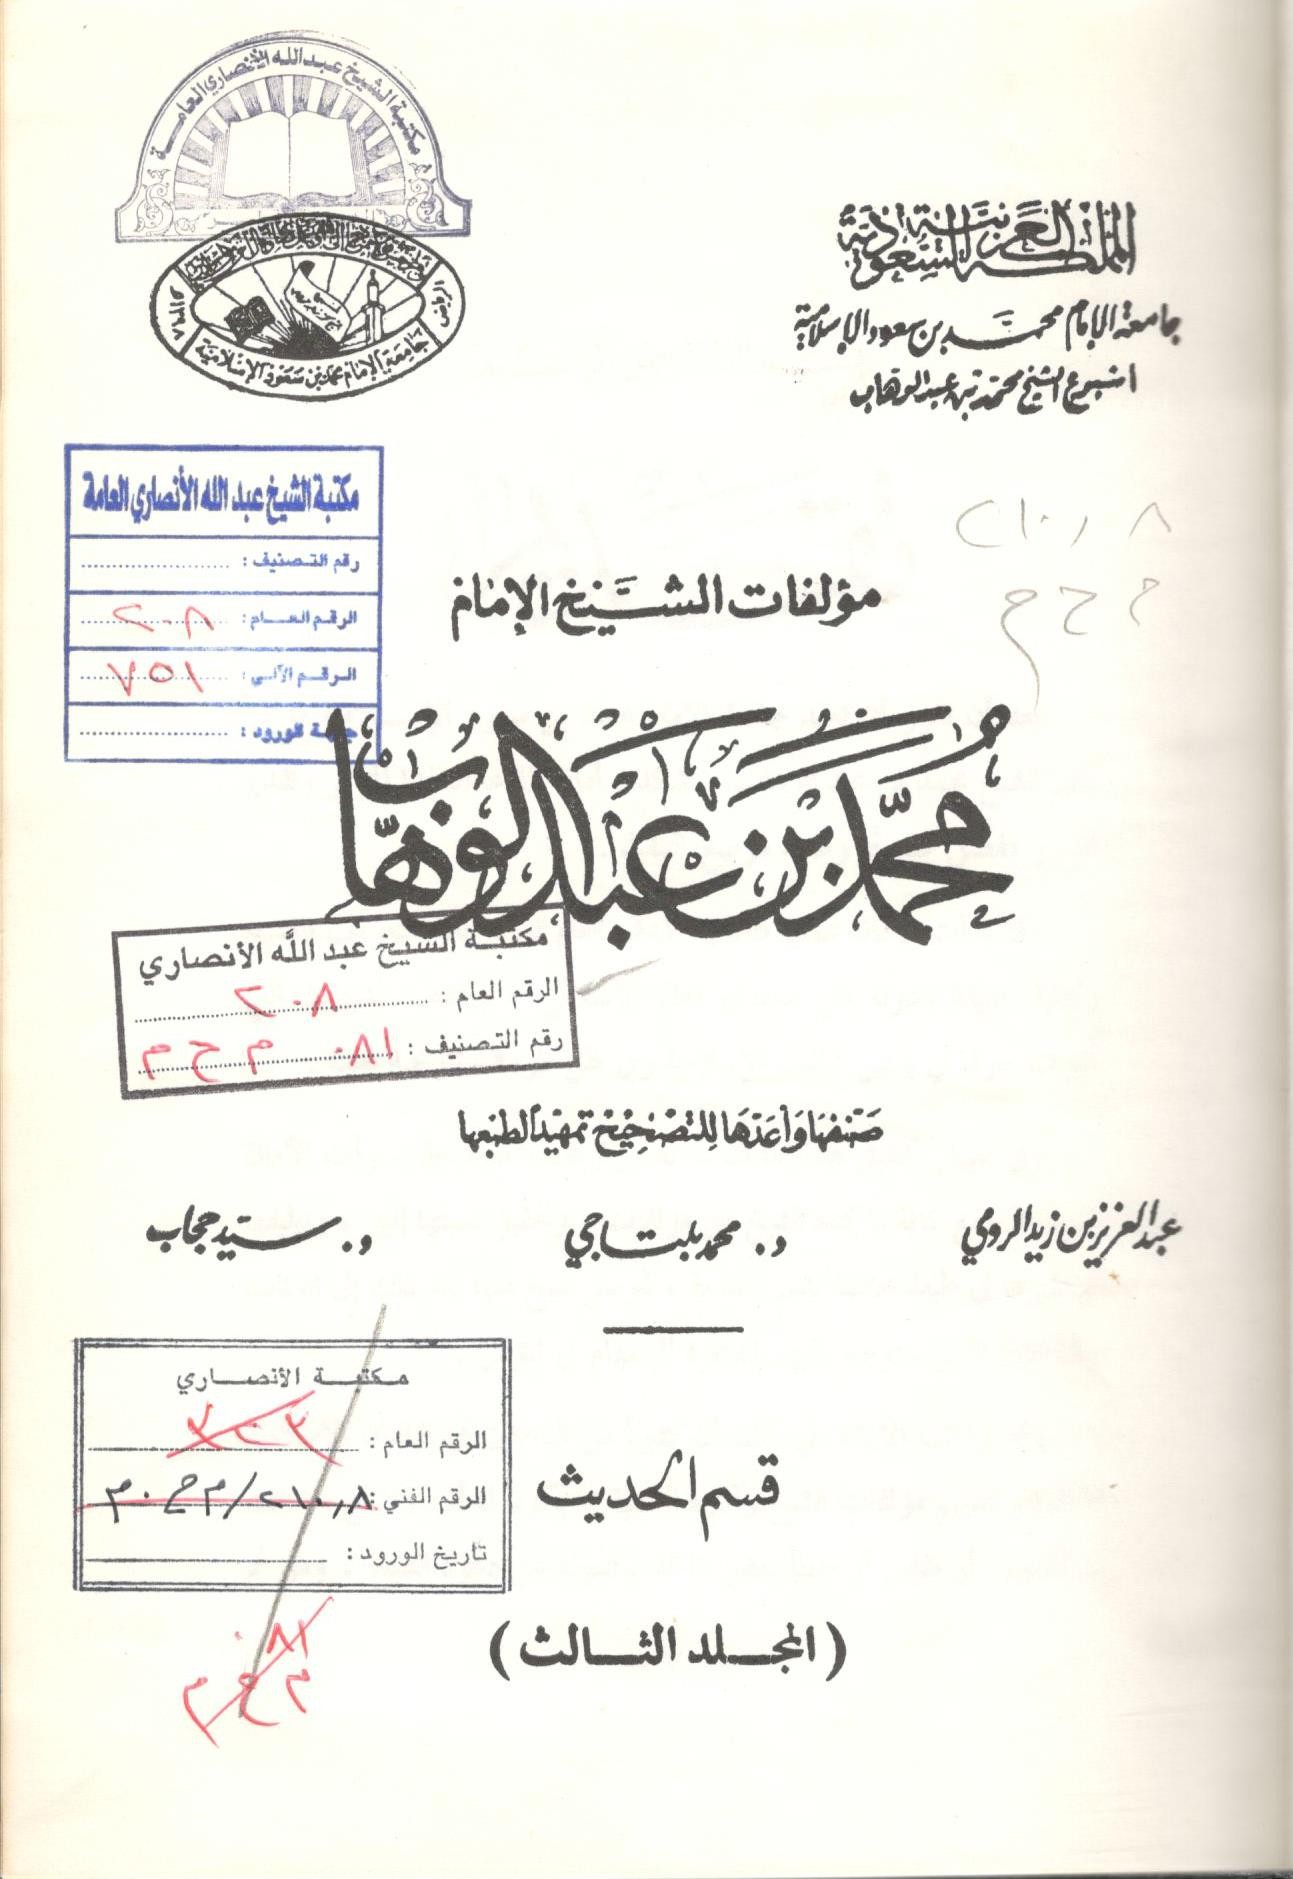 مكتبة الشيخ عبد الله الأنصاري العامة
المملكة العربية السعودية
جامعة الإمام محمد بن سعود الإسلامية
اسبوع الشيخ محمد بن عبد الوهاب
الرياض
جامعة الإمام محمد بن سعود الإسلامية
مكتبة الشيخ عبد الله الأنصاري العامة
رقم التصنيف :
الرقم العام : ٢٠٨
الرقم الآلي : ٧٥١
جهة الورود :
٢١٠,٨
م ح م
مؤلفات الشيخ الإمام
محمد بن عبد الوهاب
مكتبة الشيخ عبد الله الأنصاري
الرقم العام : ٢٠٨
رقم التصنيف : ٠٨١ م ح م
صنفها وأعدها للتصحيح تمهيداً لطبعها
عبد العزيز بن زيد الرومي
د. محمد بلتاجي
د. سيد حجاب
مكتبة الأنصاري
الرقم العام :
الرقم الفني : ٢١٠,٨/م ح م
تاريخ الورود :
قسم الحديث
( المجلد الثالث )
٠٨١
م ح م